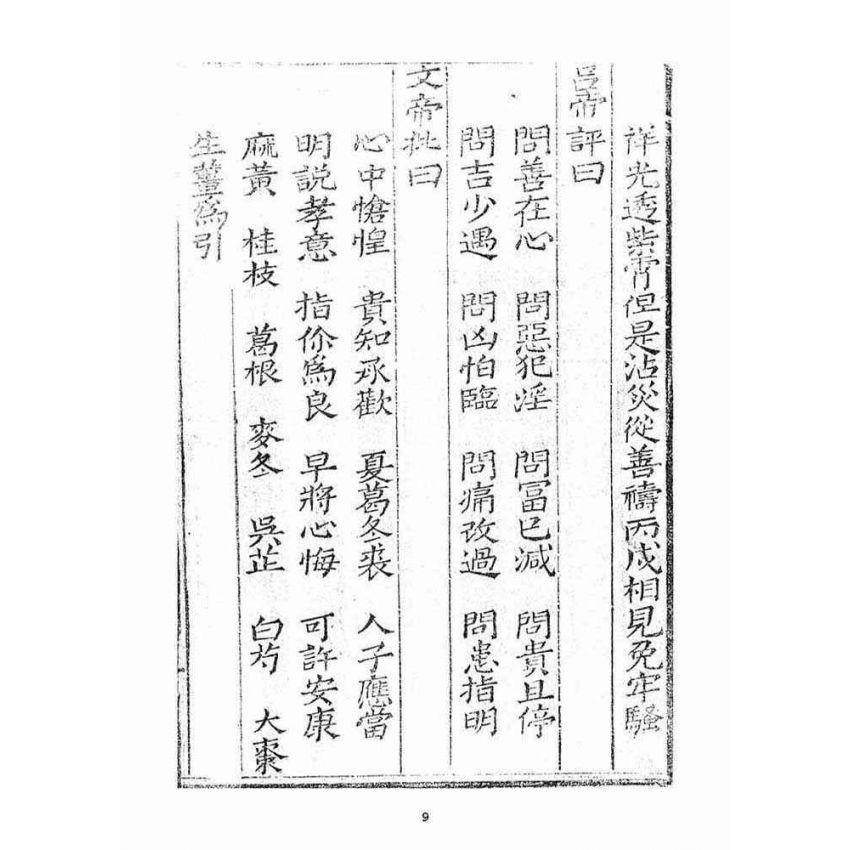 祥光透紫霄但是沾災從善禱丙戌相見免牢騷
呂帝評曰
問善在心 問惡犯淫 問冨已減 問貴且停
問吉少遇 問凶怕臨 問痛改過 問患指明
文帝批曰
心中愴惶 貴知承歡 夏葛冬裘 人子應當
明説孝意 指伱為良 早將心悔 可許安康
麻黃 桂枝 葛根 麥冬 吳芷 白芍 大棗
生薑為引
9